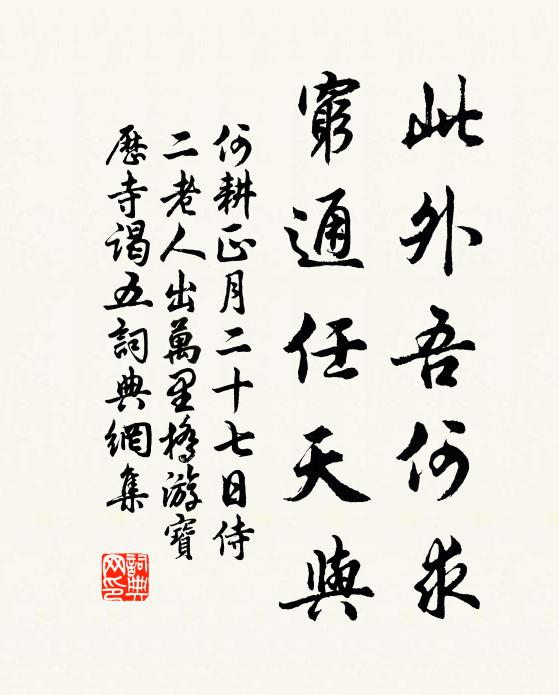 此外吾何求
窮通任天與
何耕正月二十七日侍
二老人出萬里橋游寶
歷寺謁五詞典網集
詞典
网印